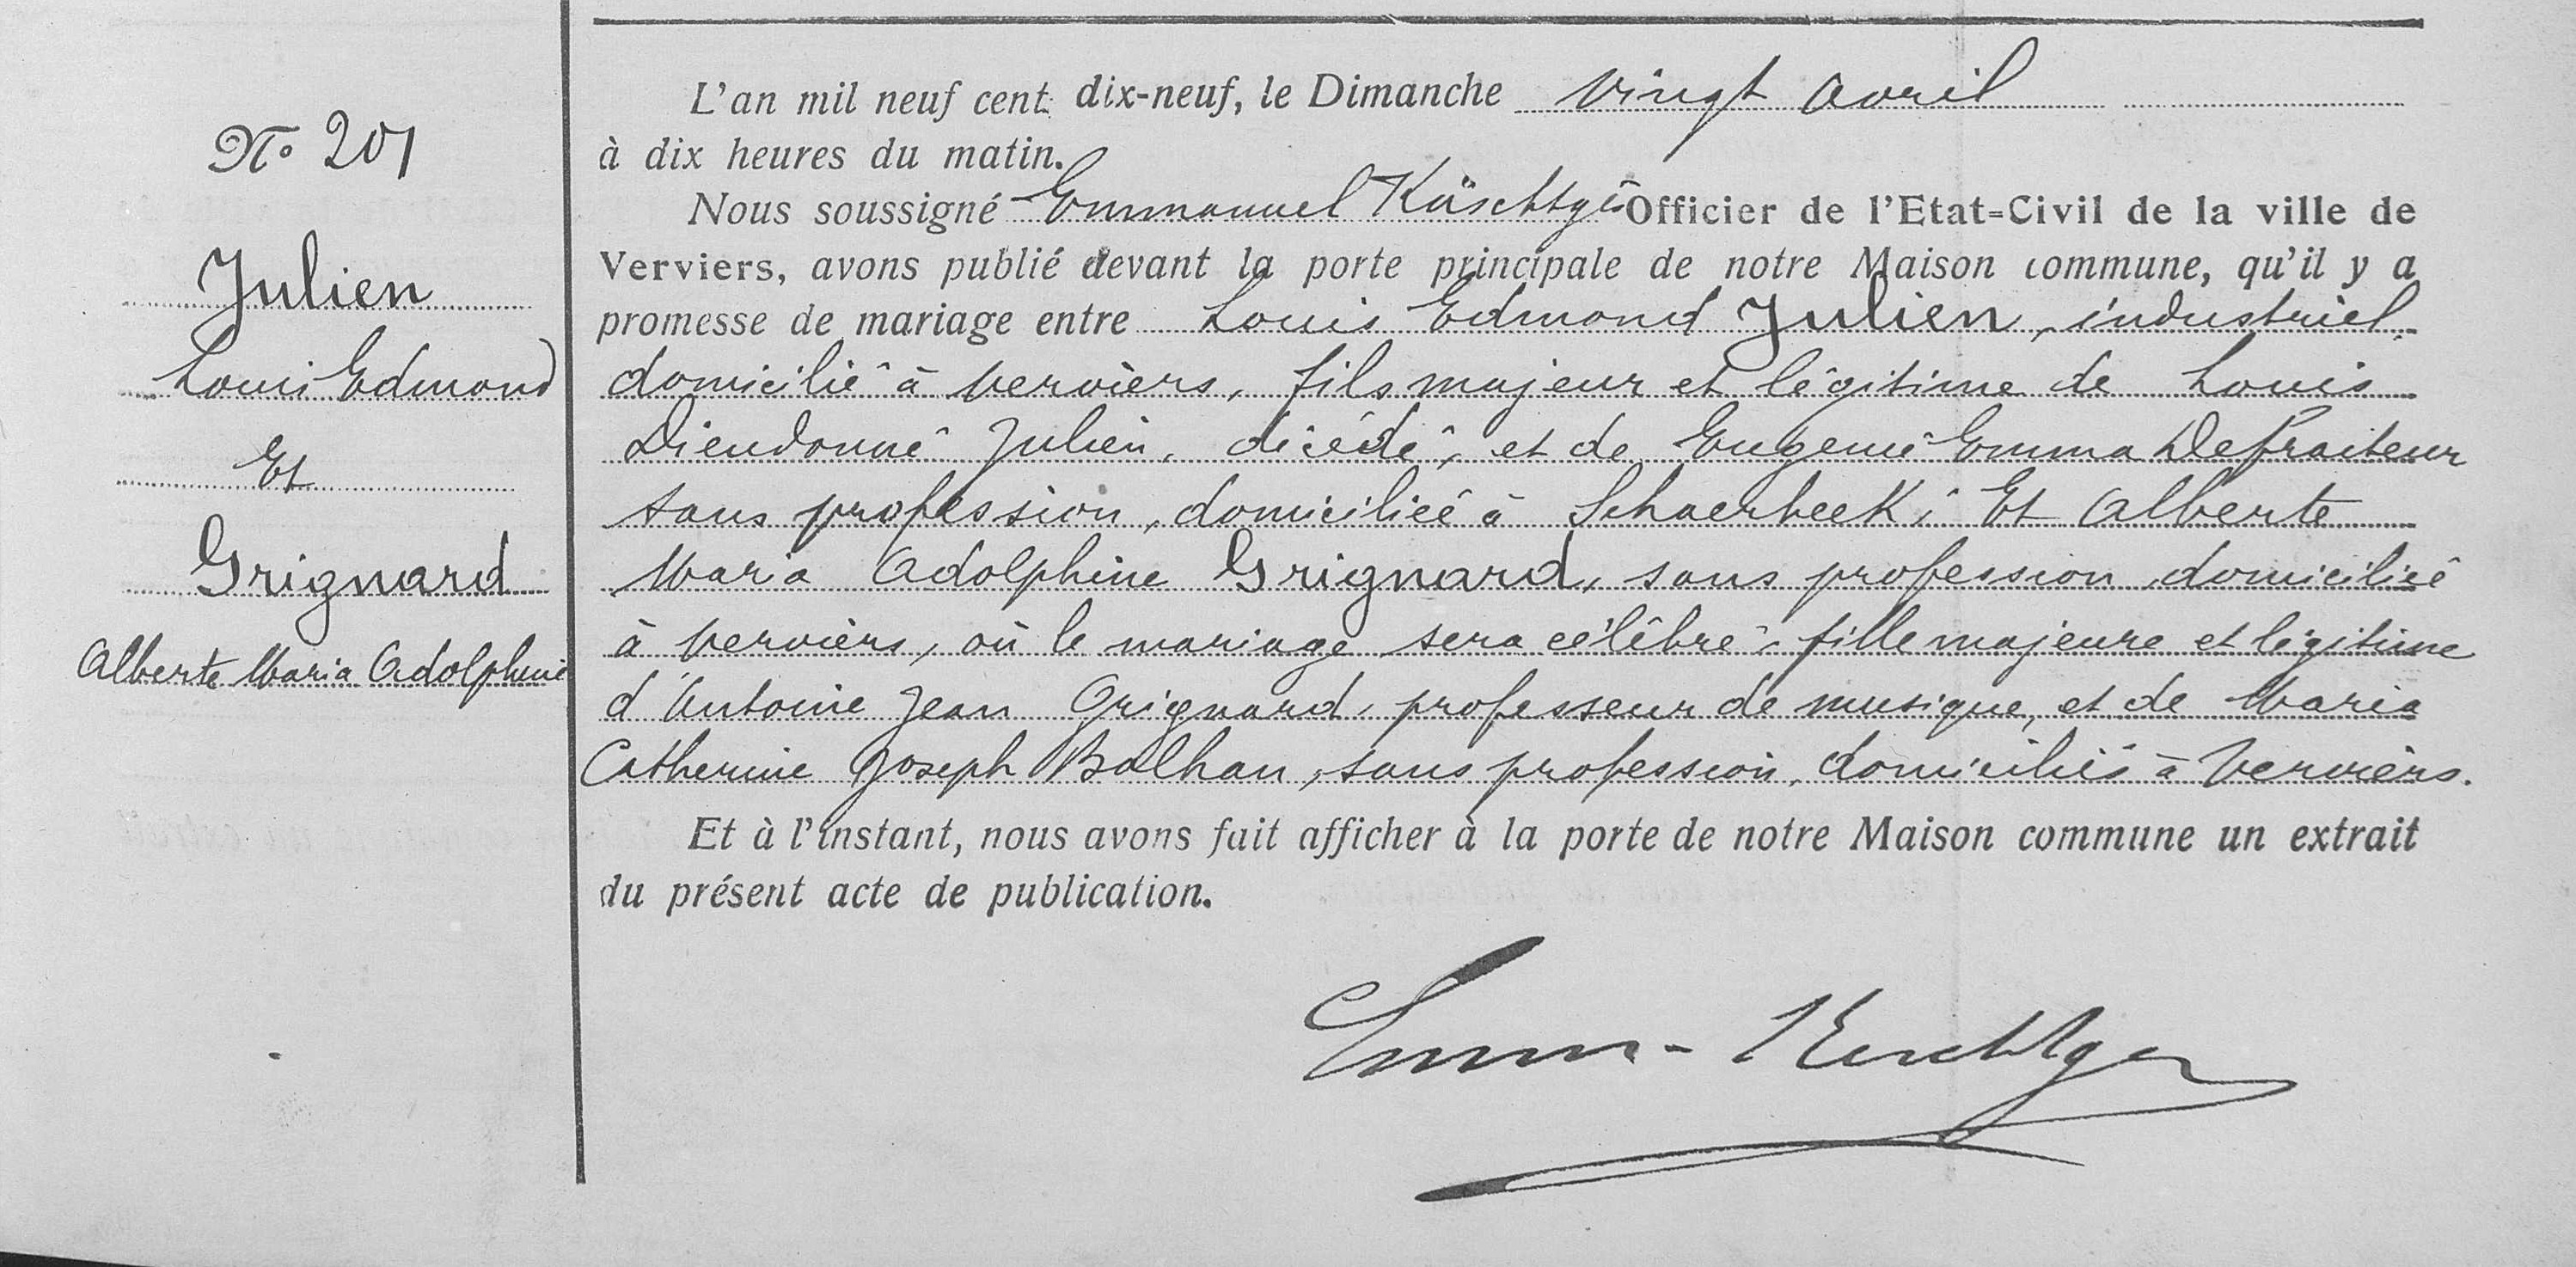 N° 201
Julien
Louis Edmond
Et
Grignard
Alberte Maria Adolphine
L'an mil neuf cent dix-neuf, le Dimanche vingt avril
à dix heures du matin.
Nous soussigné Emmanuel Officier de l'Etat-Civil de la ville de
Verviers, avons publié devant la porte principale de notre Maison commune, qu'il y a
promesse de mariage entre Louis Edmond Julien, industriel,
domicilié à Verviers, fils majeur et légitime de Louis
Dieudonné Julien, décédé, et de Eugénie Emma Defraiteur
sans profession, domiciliée à Schaerbeek; Et Alberte
Maria Adolphine Grignard, sans profession, domiciliée
à Verviers, où le mariage sera célébré, fille majeure et légitime
d'Antoine Jean Grignard, professeur de musique, et de Maria
Catherine Joseph Balhan, sans profession, domiciliés à Verviers.
Et à l'instant, nous avons fait afficher à la porte de notre Maison commune un extrait
du présent acte de publication.